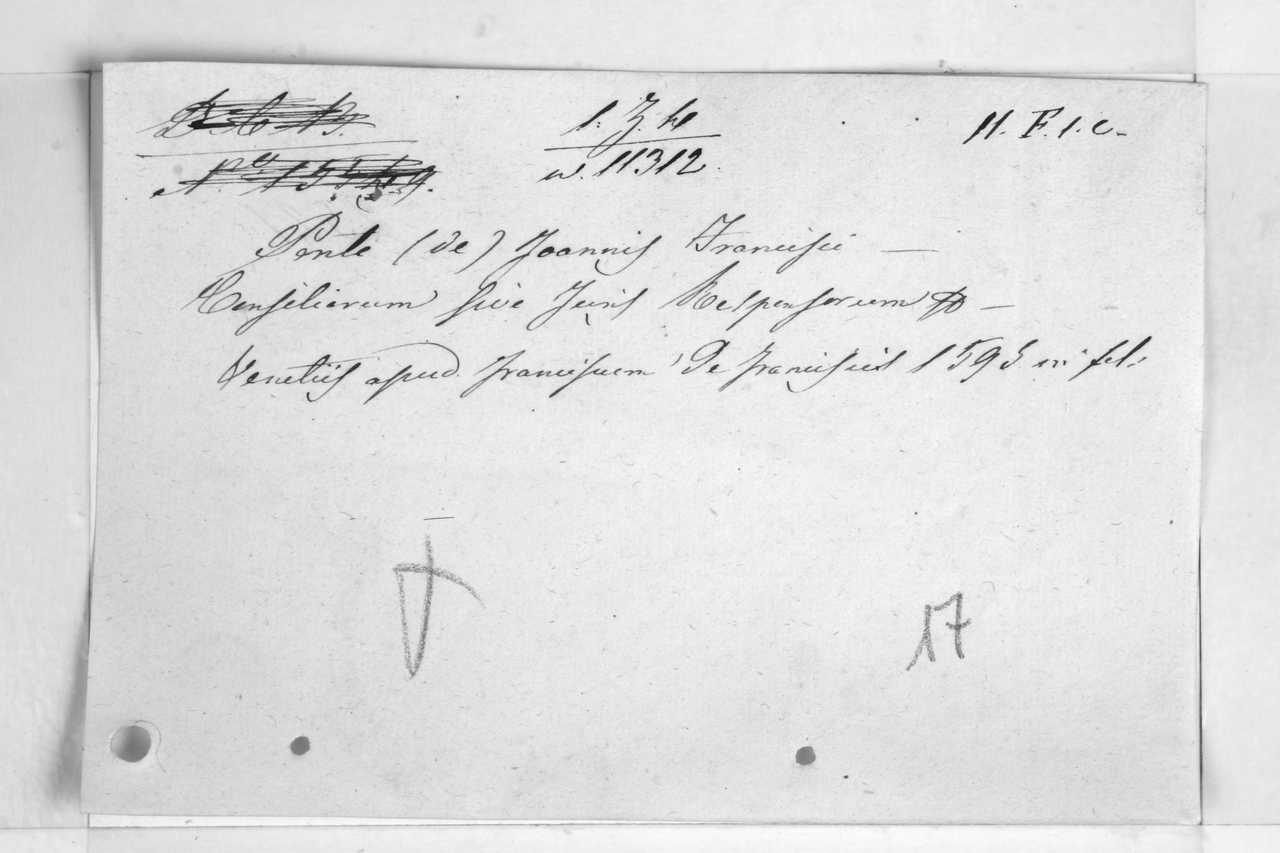 1. J. H
11. F. 1. c.
w. 11312.
Ponte (de) Joannis Francisci —
Consiliorum sive Juris Responsorum —
Venetiis apud Franciscum De Franciscis 1595 in fol.
17